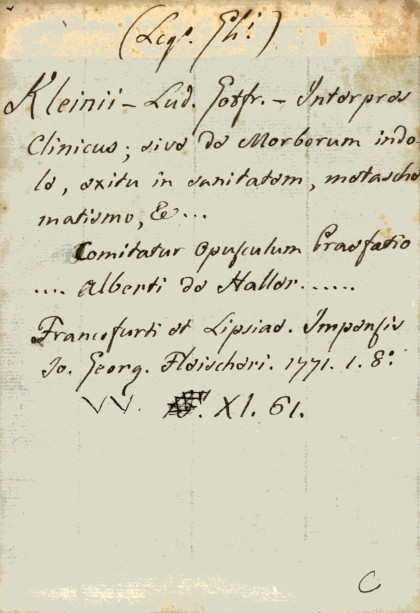 (Legs. Eh:)
Kleinii - Lud. Gottfr. - Interpres
Clinicus; sive de Morborum indo-
le, exitu in sanitatem, metasche
matismo, &...
Comitatur Opusculum Praefatio
.... Alberti de Haller......
Francofurti et Lipsiae. Impensis
Io. Georg. Fleischeri. 1771. 1. 8º.
VV. XI. 61.
C